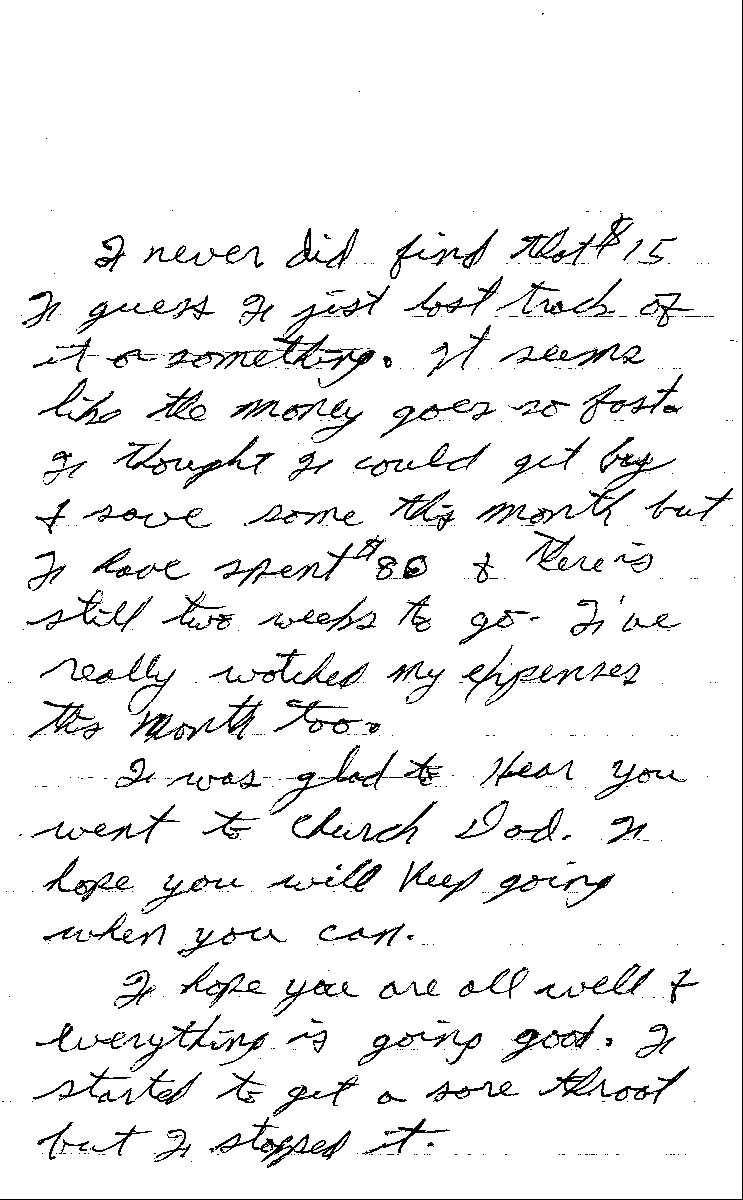 I never did find that $15
I guess I just lost track of
it or something. It seems
like the money goes so fast.
I thought I could get by
& save some this month but
I have spent $80 & there is
still two weeks to go. I've
really watched my expenses
this month too.
I was glad to hear you
went to church Dad. I
hope you will keep going
when you can.
I hope you are all well &
everything is going good. I
started to get a sore throat
but I stopped it.